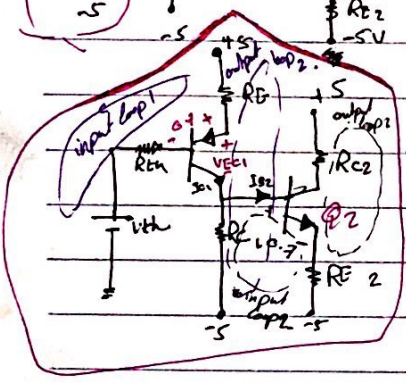 -5
-5
RE2
-5V
+5
output
loop2
RE
+5
output
loop2
input loop1
0.7
+
Rth
VEC1
IC1
IB2
RC2
Q2
Vth
0.7
RE 2
input
loop2
-5
-5